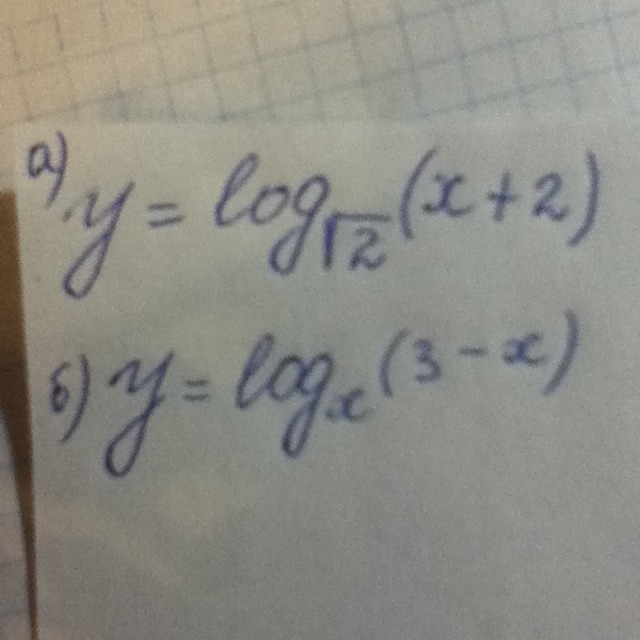 а) y = log_√2 (x + 2)
б) y = log_x (3 - x)